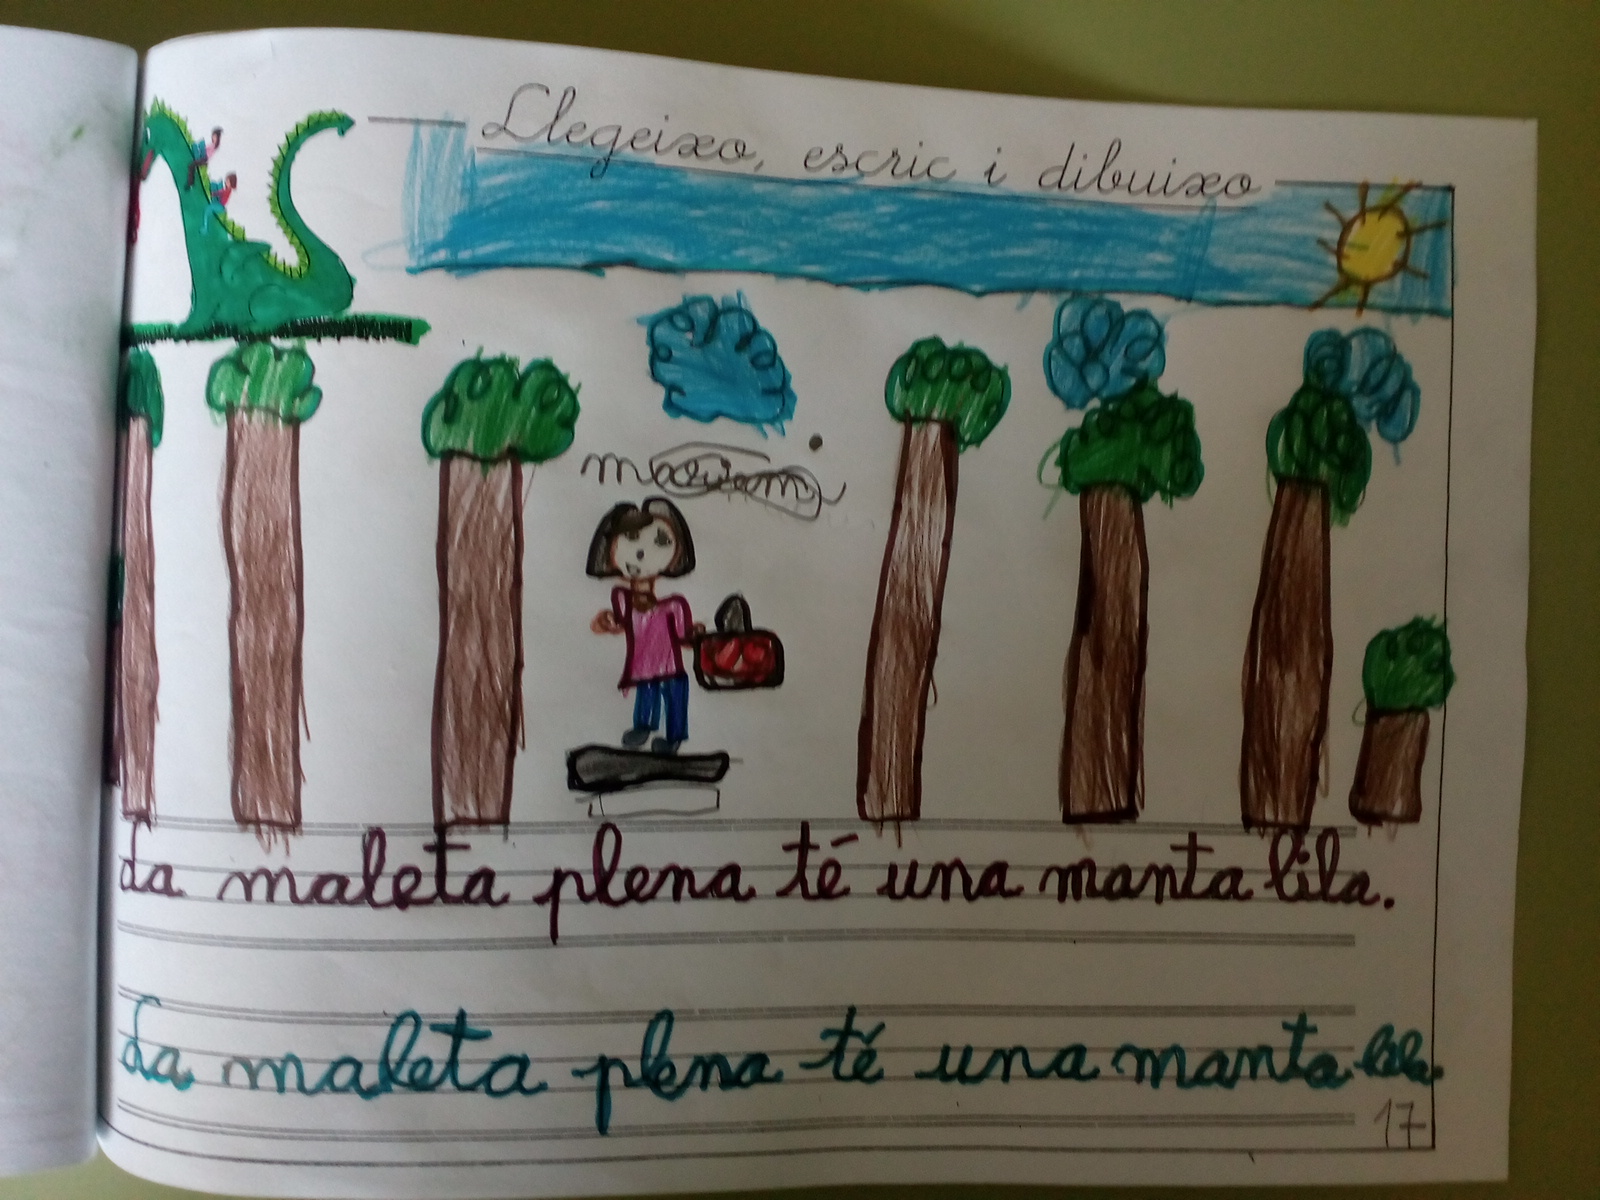 Llegeixo, escric i dibuixo
La maleta plena té una manta lila.
La maleta plena té una manta lila.
17